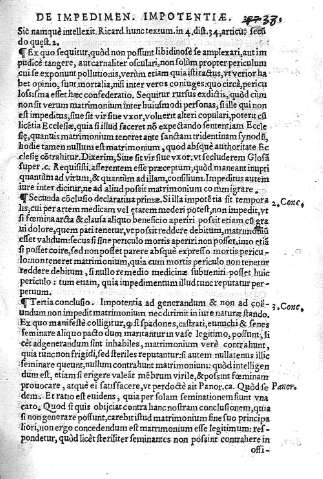 DE IMPEDIMEN. IMPOTENTIÆ. 33.
Sic namque intellexit. Ricard. hunc textum. in 4. dist. 34. articu. secū
do quęst. 2.
¶ Ex quo sequitur, quòd non possunt libidinosè se amplexari, aut im
pudicè tangere, aut carnaliter osculari, non solùm propter periculum
cui se exponunt pollutionis, verùm etiam quia isti actus, vt verior ha
bet opinio, sunt mortalia, nisi inter veros coniuges. quo circà, pericu
losissima esset hæc confederatio. Sequitur rursus ex dictis, quòd cùm
non sit verum matrimonium inter huiusmodi personas, si ille qui non
est impeditus, siue sit vir siue vxor, voluerit alteri copulari, potest cū
licētia Ecclesię, quia si illud faceret nō expectando sententiam Eccle
się, quamuis matrimonium teneret ante sanctam tridentinam synodū,
hodie tamen nullum est matrimonium, quod absque authoritate Ec
clesię cōtrahitur. Dixerim, siue sit vir siue vxor. vt secluderem Glosam
super .c. Requisisti, asserentem esse præceptum, quòd maneant inupti
quantùm ad virum, & quantùm ad illam, consilium. Impeditus autem
iure inter dicitur, ne ad aliud possit matrimonium commigrare.
¶ Secunda cōclusio declaratiua primæ. Si illa impotētia sit tempora
lis, cui per artem medicam vel ętatem mederi potest, non impedit, vt
si fœmina arcta & clausa aliquo beneficio aperiri possit etiam cū gra
ui dolore, quem pati tenetur, vt possit reddere debitum, matrimoniū
esset validum: secus si sine periculo mortis aperiri non posset, imo etiā
si posset coire, sed non posset parere absque expresso mortis pericu-
lo: non teneret matrimonium, quia cum mortis periculo non tenetur
reddere debitum, si nullo remedio medicinæ subueniri posset huic
periculo: tum etiam, quia impedimentum illud tunc reputatur per-
petuum.
2. Conc.
¶ Tertia conclusio. Impotentia ad generandum & non ad coē-
undum non impedit matrimonium nec dirimit in iure naturæ stando.
Ex quo manifestè colligitur, q̃ si spadones, castrati, eunuchi & senes
seminare aliquo pacto dum maritantur in vase legitimo, possunt, li
cèt ad generandum sint inhabiles, matrimonium verè contrahunt,
quia tunc non frigidi, sed steriles reputantur: si autem nullatenus illic
seminare queunt, nullum contrahunt matrimonium: quod intelligen
dum est, etiam si erigere valeāt mēbrum virile, & possint fœminam
prouocare, atque ei satisfacere, vt perdoctè ait Panor. ea. Quòd se
dem. Et ratio est euidens, quia per solam seminationem sunt vna
caro. Quod si quis obijciat contra hanc nostram conclusionem, quia
si non generare possunt, carebit illud matrimonium fine suo principa
liori, non ergo concedendum est matrimonium esse legitimum: res-
pondetur, quòd licèt steriliter seminantes non possint contrahere in
3. Conc.
Panor.
offi-